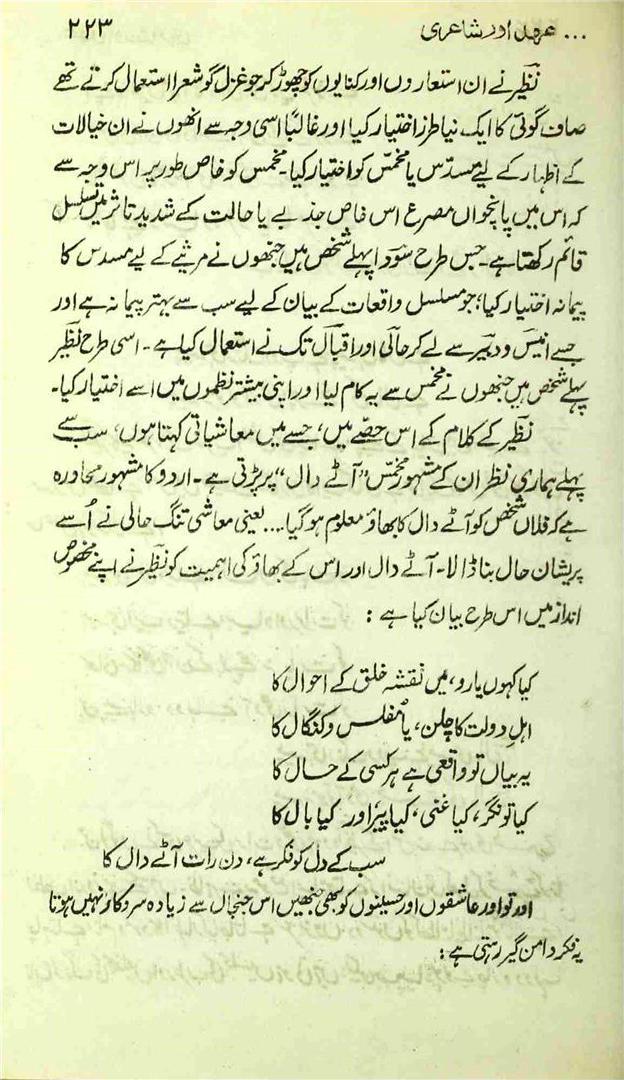 ... عہد اور شاعری ۲۲۳
نظیر نے ان استعاروں اور کنایوں کو چھوڑ کر جو غزل گو شعرا استعمال کرتے تھے
صاف گوئی کا ایک نیا طرز اختیار کیا اور غالباً اسی وجہ سے انھوں نے ان خیالات
کے اظہار کے لیے مسدّس یا مخمّس کو اختیار کیا۔ مخمس کو خاص طور پر اس وجہ سے
کہ اس میں پانچواں مصرع اس خاص جذبے یا حالت کے شدید تاثر میں تسلسل
قائم رکھتا ہے۔ جس طرح سودا پہلے شخص ہیں جنھوں نے مرثیے کے لیے مسدس کا
پیمانہ اختیار کیا؛ جو مسلسل واقعات کے بیان کے لیے سب سے بہتر پیمانہ ہے اور
جسے انیس و دبیر سے لے کر حالی اور اقبال تک نے استعمال کیا ہے۔ اسی طرح نظیر
پہلے شخص ہیں جنھوں نے مخمس سے یہ کام لیا اور اپنی بیشتر نظموں میں اسے اختیار کیا۔
نظیر کے کلام کے اس حصّے میں، جسے میں معاشیاتی کہتا ہوں، سب سے
پہلے ہماری نظر ان کے مشہور مخمّس ”آٹے دال“ پر پڑتی ہے۔ اردو کا مشہور محاورہ
ہے کہ فلاں شخص کو آٹے دال کا بھاؤ معلوم ہو گیا.... یعنی معاشی تنگ حالی نے اُسے
پریشان حال بنا ڈالا۔ آٹے دال اور اس کے بھاؤ کی اہمیت کو نظیر نے اپنے مخصوص
انداز میں اس طرح بیان کیا ہے :
کیا کہوں یارو، میں نقشہ خلق کے احوال کا
اہلِ دولت کا چلن، یا مفلس و کنگال کا
یہ بیاں تو واقعی ہے ہر کسی کے حال کا
کیا تونگر، کیا غنی، کیا پیر اور کیا بال کا
سب کے دل کو فکر ہے، دن رات آٹے دال کا
اور تو اور عاشقوں اور حسینوں کو بھی جنھیں اس جنجال سے زیادہ سروکار نہیں ہوتا
یہ فکر دامن گیر رہتی ہے :